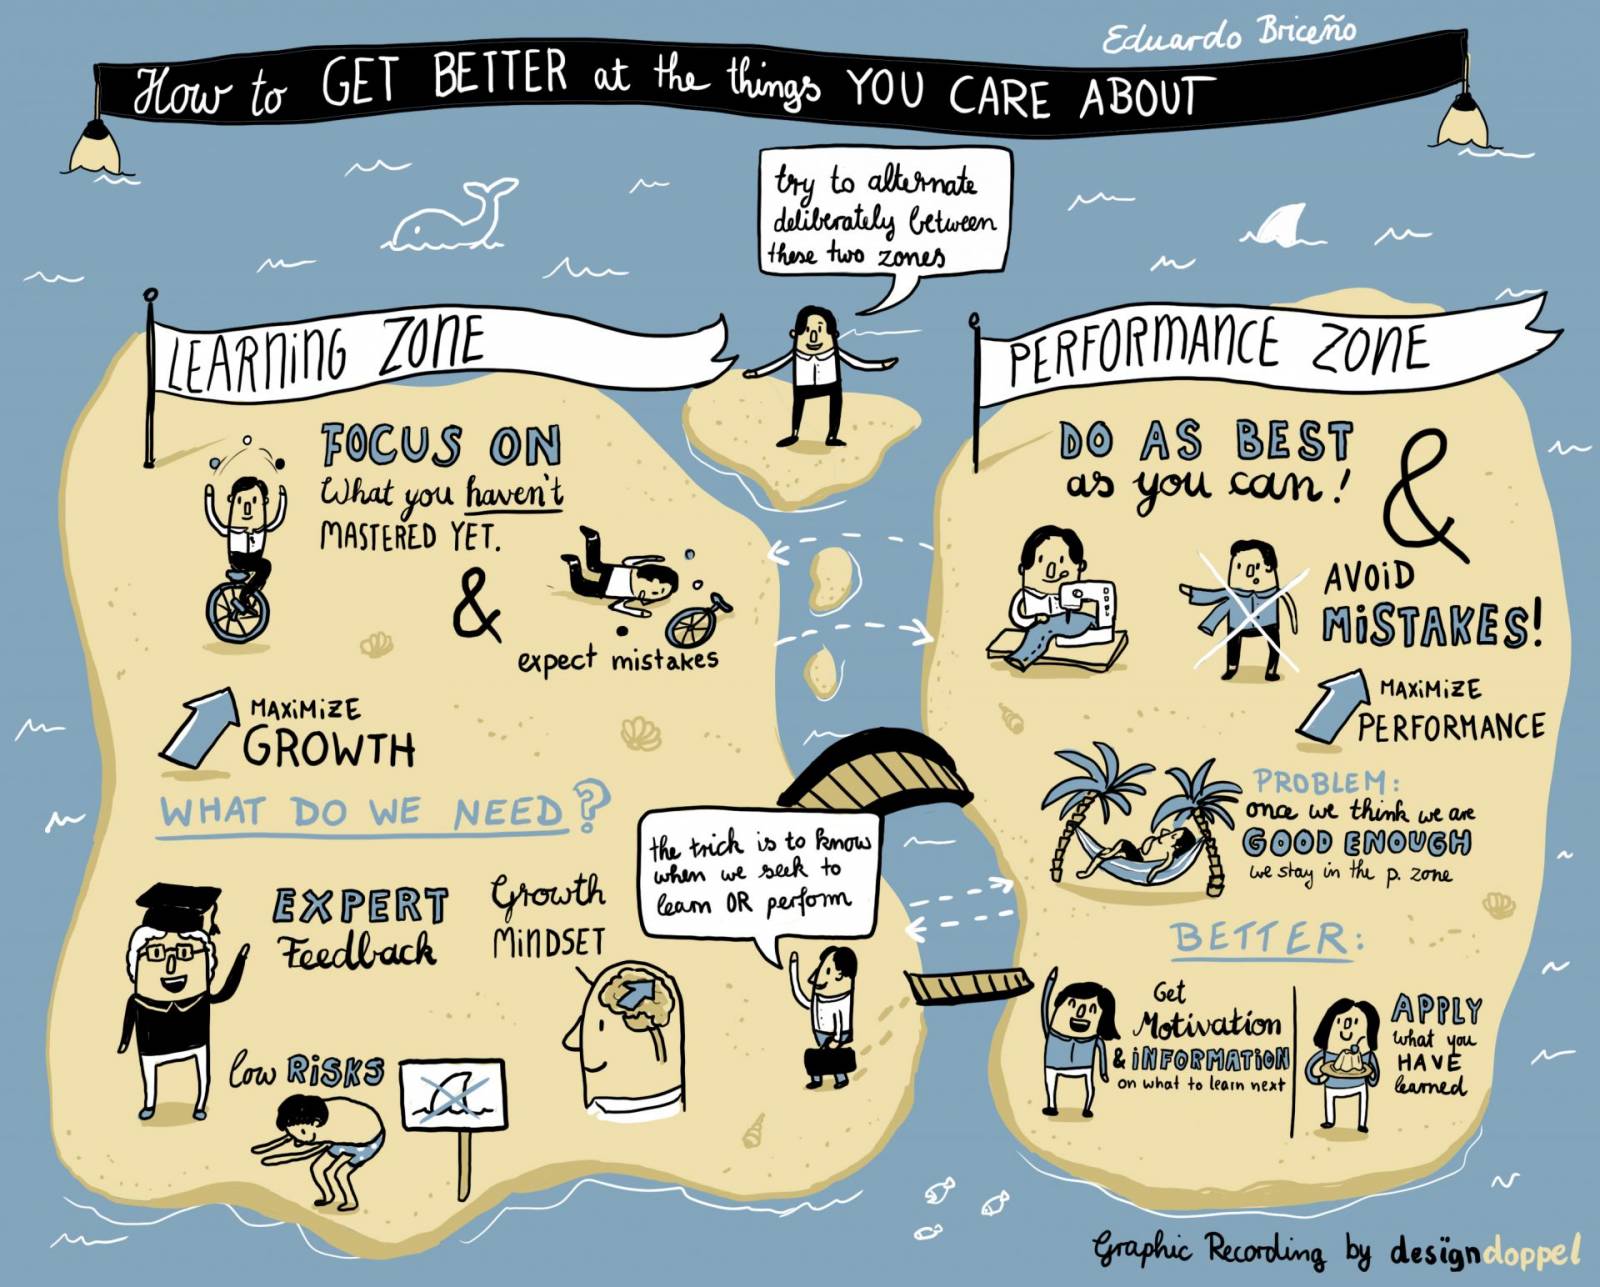 Eduardo Briceño
How to GET BETTER at the things YOU CARE ABOUT
try to alternate
deliberately between
these two zones
LEARNING ZONE
FOCUS ON
What you haven't
MASTERED YET.
&
expect mistakes
MAXIMIZE
GROWTH
WHAT DO WE NEED?
EXPERT
Feedback
Growth
MINDSET
low RISKS
the trick is to know
when we seek to
learn OR perform
PERFORMANCE ZONE
DO AS BEST
as you can!
&
AVOID
MISTAKES!
MAXIMIZE
PERFORMANCE
PROBLEM:
once we think we are
GOOD ENOUGH
we stay in the p. zone
BETTER:
Get
Motivation
& INFORMATION
on what to learn next
APPLY
what you
HAVE
learned
Graphic Recording by designdoppel